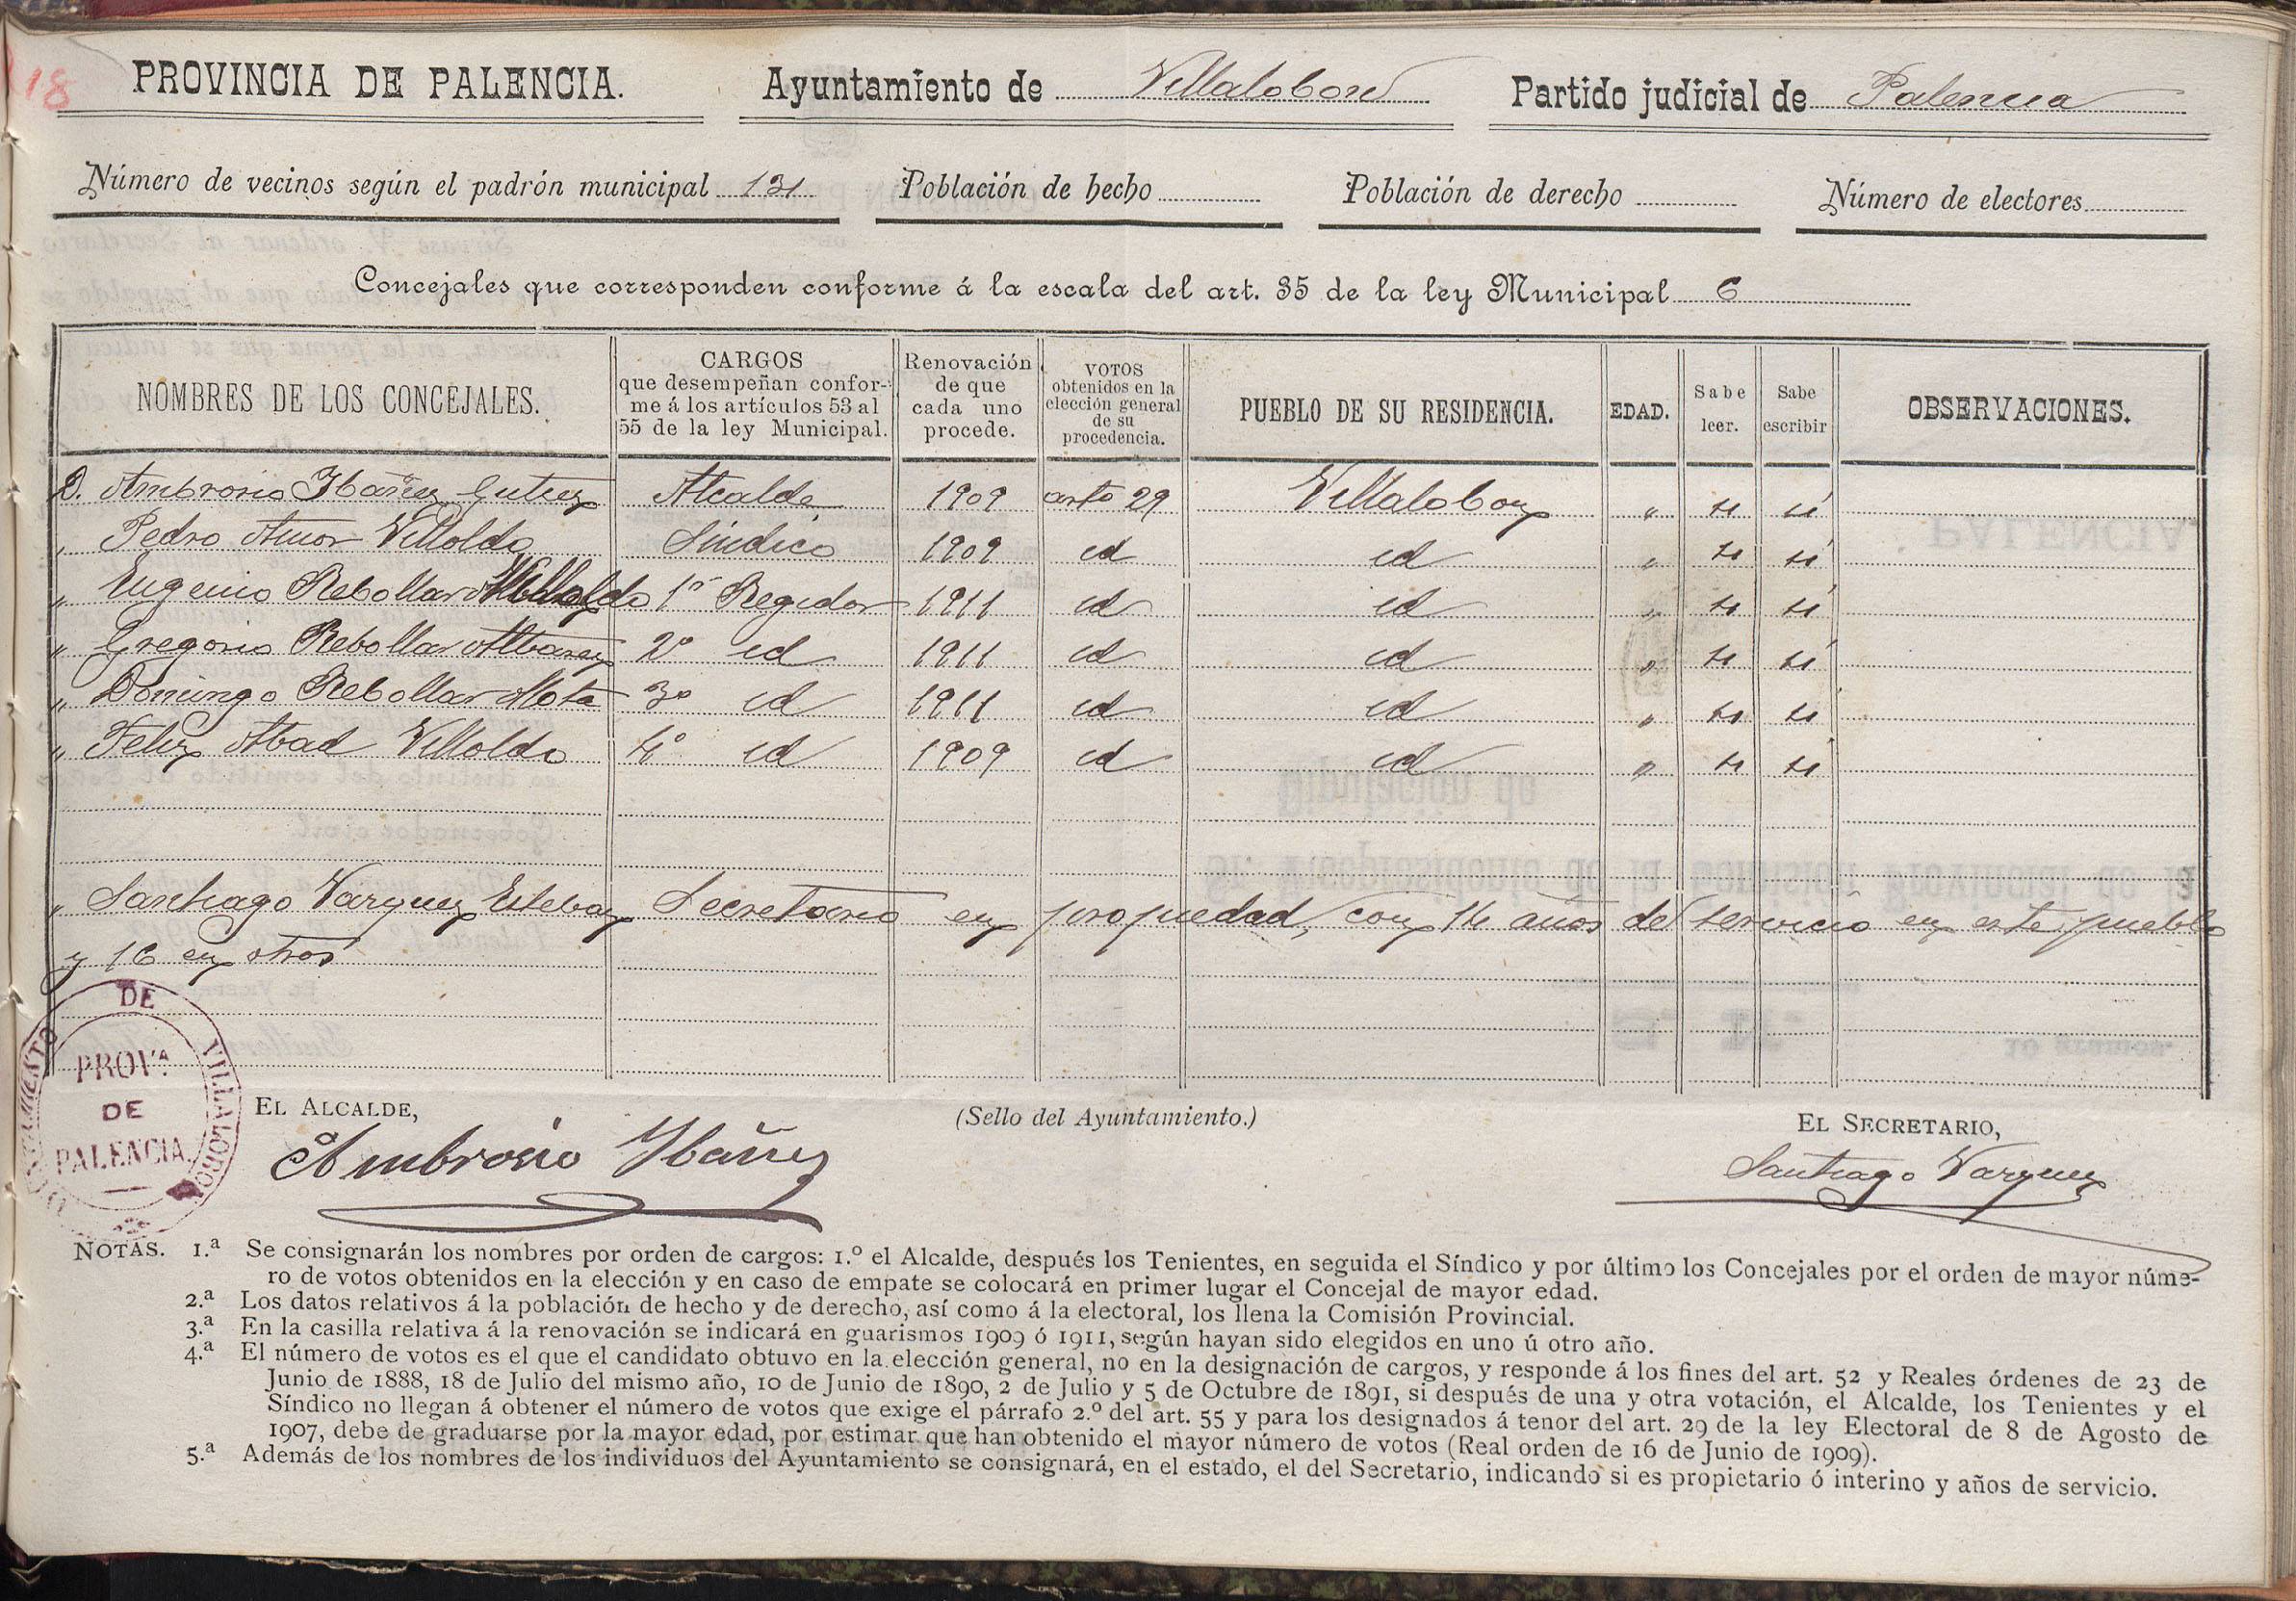 18
PROVINCIA DE PALENCIA. Ayuntamiento de Villalobon Partido judicial de Palencia
Número de vecinos según el padrón municipal 131 Población de hecho Población de derecho Número de electores
Concejales que corresponden conforme á la escala del art. 35 de la ley Municipal 6
NOMBRES DE LOS CONCEJALES. CARGOS que desempeñan confor-me á los artículos 53 al 55 de la ley Municipal. Renovación de que cada uno procede. VOTOS obtenidos en la elección general de su procedencia. PUEBLO DE SU RESIDENCIA. EDAD. Sabe leer. Sabe escribir OBSERVACIONES.
D. Ambrosio Ibañez Gutiez Alcalde 1909 arto 29 Villalobon " si si
" Pedro Amor Villoldo Sindico 1909 id id " si si
" Eugenio Rebollar Villoldo 1º Regidor 1911 id id " si si
" Gregorio Rebollar 2º id 1911 id id " si si
" Domingo Rebollar Mota 3º id 1911 id id " si si
" Feliz Abad Villoldo 4º id 1909 id id " si si
" Santiago Vazquez Esteban Secretario en propiedad, con 14 años de servicio en este pueblo
y 16 en otros
AYUNTAMIENTO DE VILLALOBON
PROVª.
DE
PALENCIA.
EL ALCALDE, (Sello del Ayuntamiento.) EL SECRETARIO,
Ambrosio Ibañez Santiago Vazquez
NOTAS. 1.ª Se consignarán los nombres por orden de cargos: 1.º el Alcalde, después los Tenientes, en seguida el Síndico y por último los Concejales por el orden de mayor núme-
ro de votos obtenidos en la elección y en caso de empate se colocará en primer lugar el Concejal de mayor edad.
2.ª Los datos relativos á la población de hecho y de derecho, así como á la electoral, los llena la Comisión Provincial.
3.ª En la casilla relativa á la renovación se indicará en guarismos 1909 ó 1911, según hayan sido elegidos en uno ú otro año.
4.ª El número de votos es el que el candidato obtuvo en la elección general, no en la designación de cargos, y responde á los fines del art. 52 y Reales órdenes de 23 de
Junio de 1888, 18 de Julio del mismo año, 10 de Junio de 1890, 2 de Julio y 5 de Octubre de 1891, si después de una y otra votación, el Alcalde, los Tenientes y el
Síndico no llegan á obtener el número de votos que exige el párrafo 2.º del art. 55 y para los designados á tenor del art. 29 de la ley Electoral de 8 de Agosto de
1907, debe de graduarse por la mayor edad, por estimar que han obtenido el mayor número de votos (Real orden de 16 de Junio de 1909).
5.ª Además de los nombres de los individuos del Ayuntamiento se consignará, en el estado, el del Secretario, indicando si es propietario ó interino y años de servicio.